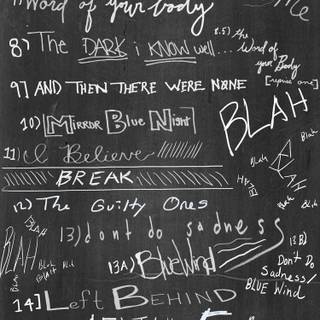 Word of your body
Me
8) The DARK i KNOW well...
8.5) the
Word of
your Body
[reprise one]
9) AND THEN THERE WERE NONE
BLAH
10) MIRROR BLUE NIGHT
11) I Believe
Blah
BLAH
BREAK
BLAH
Blah
Blah
12) The Guilty Ones
BLAH
13) dont do sadness
BLAH
Blah
Blah
13A) BlueWind
13B)
Don't Do
Sadness/
BLUE Wind
Blah
14) Left BEHIND